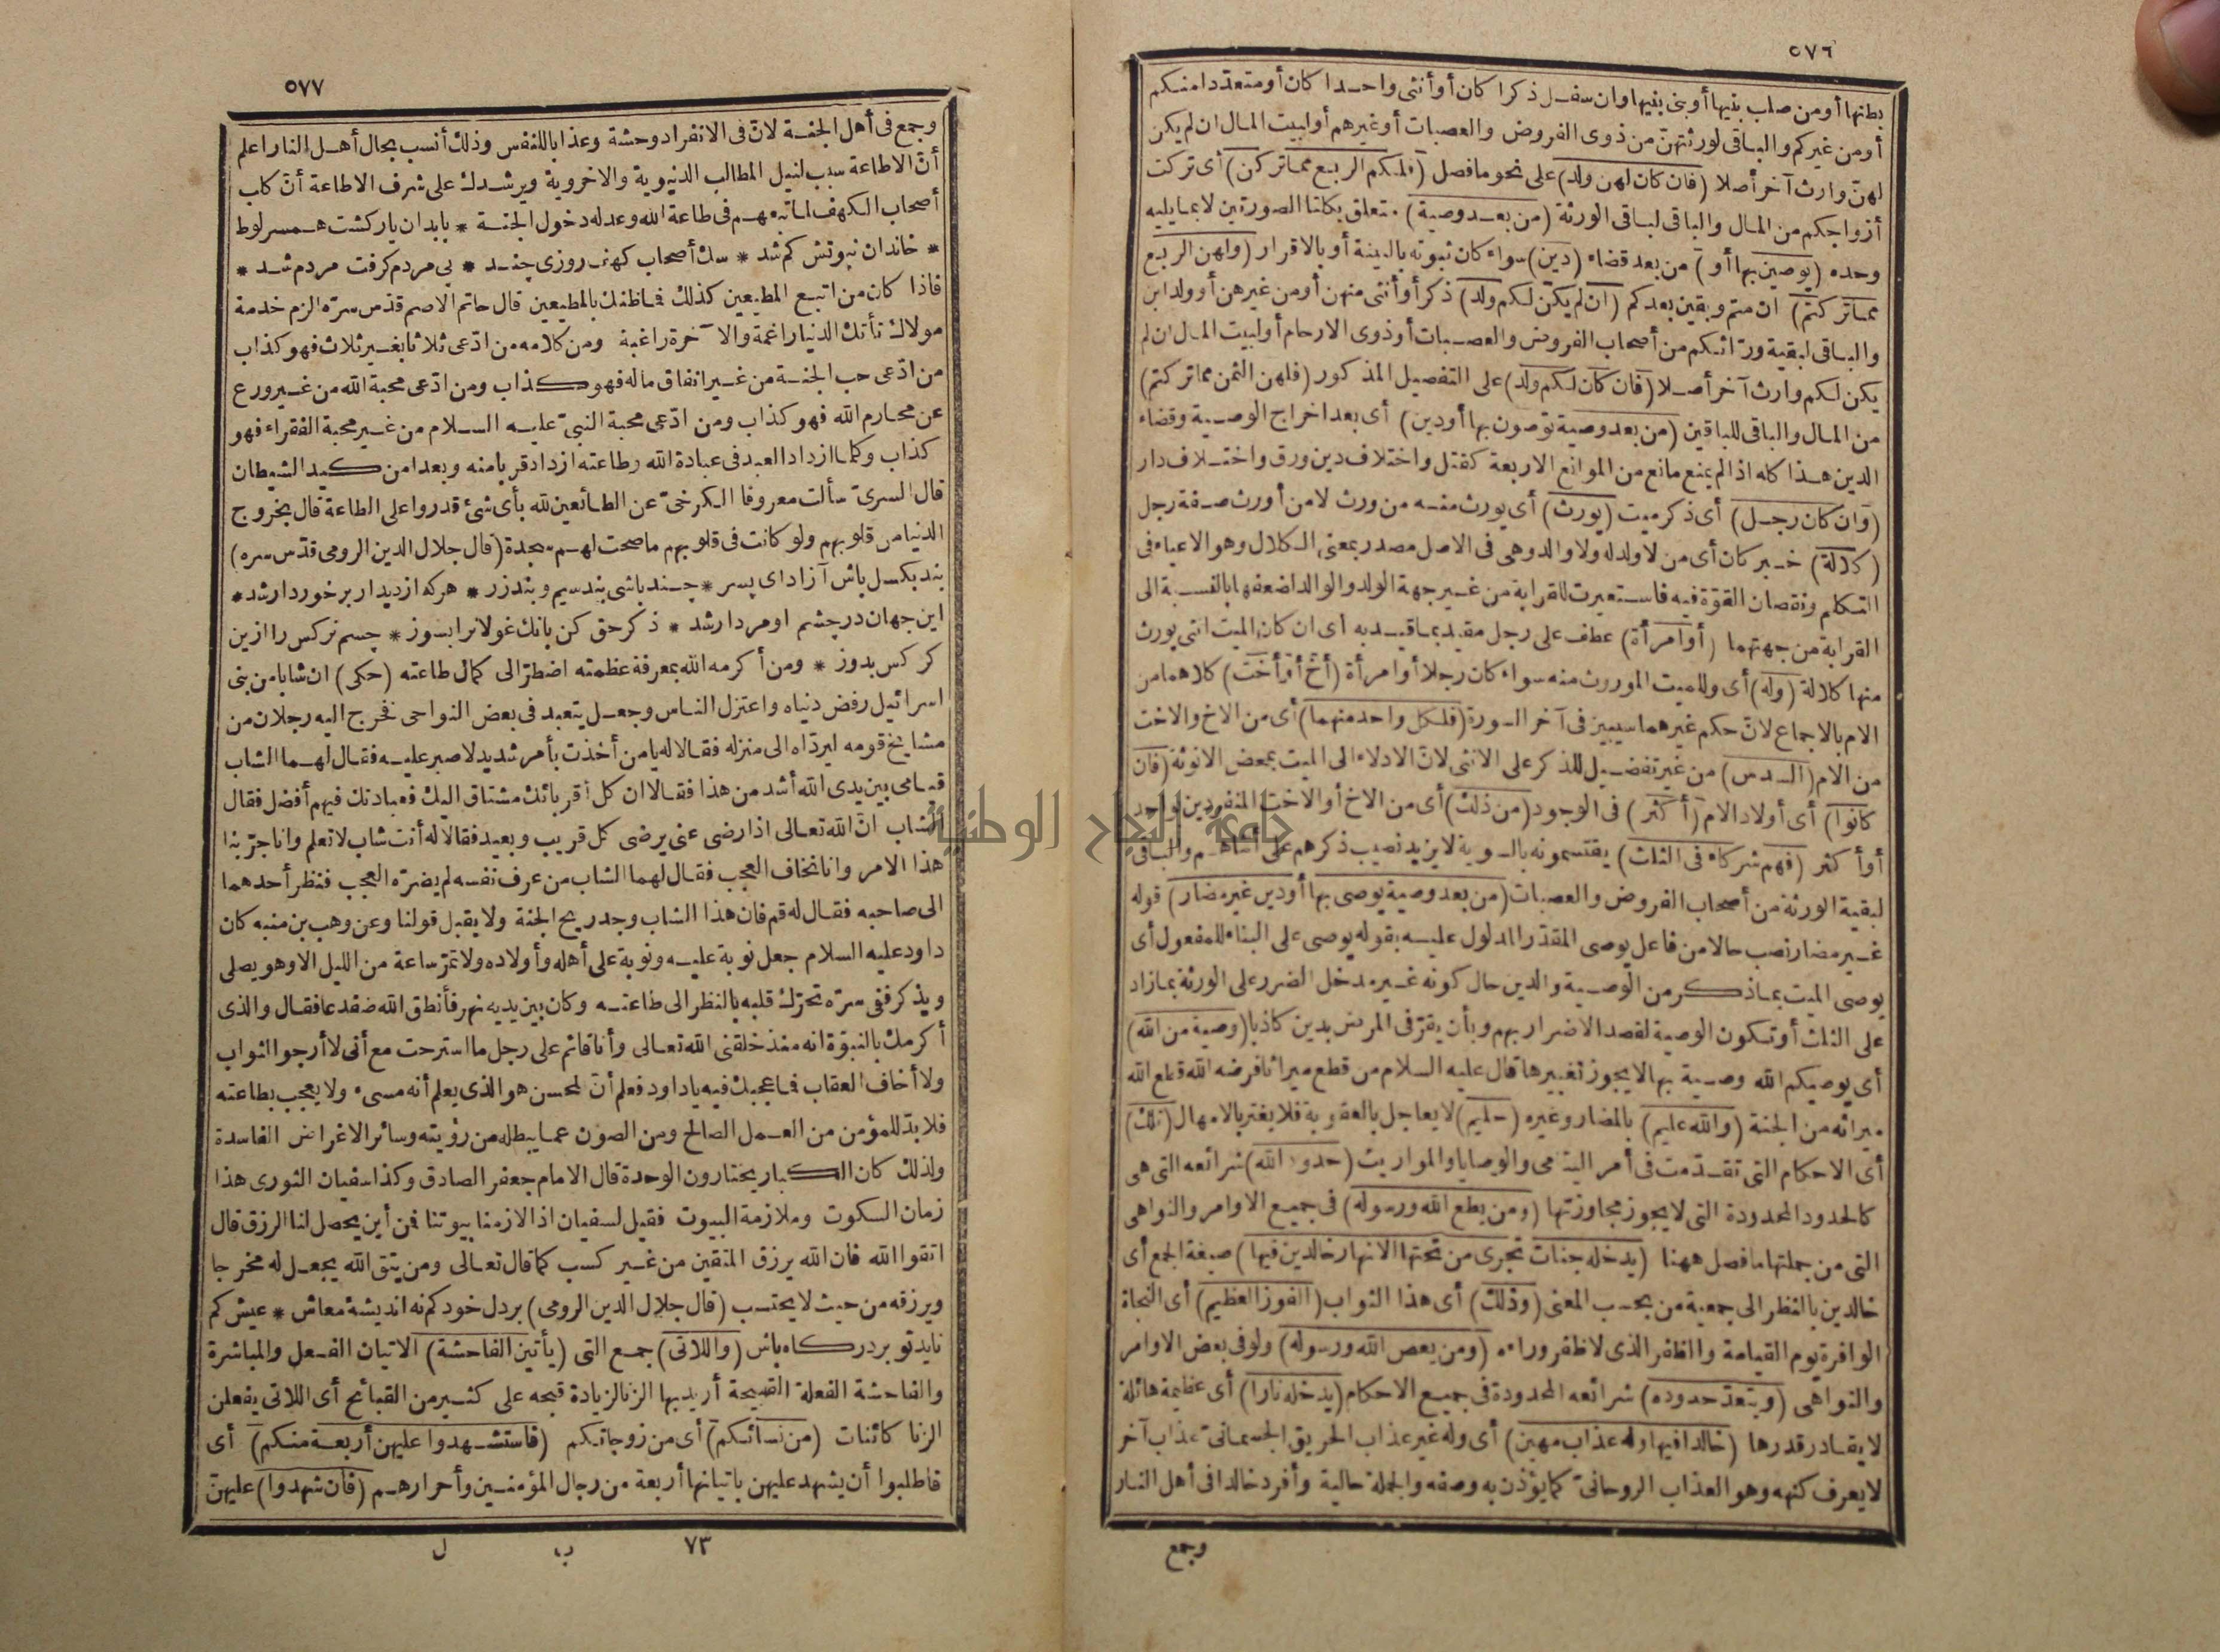 ٥٧٦
بطنها أو من صلب بنيها أو بنى بنيها وان سفل ذكرا كان أو أنثى واحدا كان أو متعددا منكم
أو من غيركم والباقى لورثتهن من ذوى الفروض والعصبات أو غيرهم أو لبيت المال ان لم يكن
لهن وارث آخر أصلا (فان كان لهن ولد) على نحو ما فصل (فلكم الربع مما تركن) أى تركت
أزواجكم من المال والباقى لباقى الورثة (من بعد وصية) متعلق بكلتا الصورتين لا بما يليه
وحده (يوصين بها أو) من بعد قضاء (دين) سواء كان ثبوته بالبينة أو بالاقرار (ولهن الربع
مما تركتم) ان متم وبقين بعدكم (ان لم يكن لكم ولد) ذكر أو أنثى منهن أو من غيرهن أو ولد ابن
والباقى لبقية ورثائكم من أصحاب الفروض والعصبات أو ذوى الارحام أو لبيت المال ان لم
يكن لكم وارث آخر أصلا (فان كان لكم ولد) على التفصيل المذكور (فلهن الثمن مما تركتم)
من المال والباقى للباقين (من بعد وصية توصون بها أو دين) أى بعد اخراج الوصية وقضاء
الدين هذا كله اذا لم يمنع مانع من الموانع الاربعة كقتل واختلاف دين ورق واختلاف دار
(وان كان رجل) أى ذكر ميت (يورث) أى يورث منه من ورث لا من أورث صفة رجل
(كلالة) خبر كان أى من لا ولد له ولا والد وهى فى الاصل مصدر بمعنى الكلال وهو الاعياء فى
التكلم ونقصان القوة فيه فاستعيرت للقرابة من غير جهة الولد والوالد لضعفها بالنسبة الى
القرابة من جهتهما (أو امرأة) عطف على رجل مقيد بما قيد به أى ان كان الميت انثى يورث
منها كلالة (وله) أى وللميت الموروث منه سواء كان رجلا أو امرأة (أخ أو أخت) كلاهما من
الام بالاجماع لان حكم غيرهما سيبين فى آخر السورة (فلكل واحد منهما) أى من الاخ والاخت
من الام (السدس) من غير تفضيل للذكر على الانثى لان الادلاء الى الميت بمحض الانوثة (فان
كانوا) أى أولاد الام (أكثر) فى الوجود (من ذلك) أى من الاخ أو الاخت المنفردين لواحد
أو أكثر (فهم شركاء فى الثلث) يقتسمونه بالسوية لا يزيد نصيب ذكرهم على أنثاهم والباقى
لبقية الورثة من أصحاب الفروض والعصبات (من بعد وصية يوصى بها أو دين غير مضار) قوله
غير مضار نصب حالا من فاعل يوصى المقدر المدلول عليه بقوله يوصى على البناء للمفعول أى
يوصى الميت بما ذكر من الوصية والدين حال كونه غير مدخل الضرر على الورثة بما زاد
على الثلث أو تكون الوصية لقصد الاضرار بهم وبأن يقر فى المرض بدين كاذبا (وصية من الله)
أى يوصيكم الله وصية بها لا يجوز تغييرها قال عليه السلام من قطع ميراثا فرضه الله قطع الله
ميراثه من الجنة (والله عليم) بالمضار وغيره (حليم) لا يعاجل بالعقوبة فلا يغتر بالامهال (تلك)
أى الاحكام التى تقدمت فى أمر اليتامى والوصايا والمواريث (حدود الله) شرائعه التى هى
كالحدود المحدودة التى لا يجوز مجاوزتها (ومن يطع الله ورسوله) فى جميع الاوامر والنواهى
التى من جملتها ما فصل ههنا (يدخله جنات تجرى من تحتها الانهار خالدين فيها) صيغة الجمع أى
خالدين بالنظر الى جمعية من بحسب المعنى (وذلك) أى هذا الثواب (الفوز العظيم) أى النجاة
الوافرة يوم القيامة والظفر الذى لا ظفر وراءه (ومن يعص الله ورسوله) ولو فى بعض الاوامر
والنواهى (ويتعد حدوده) شرائعه المحدودة فى جميع الاحكام (يدخله نارا) أى عظيمة هائلة
لا يقادر قدرها (خالدا فيها وله عذاب مهين) أى وله غير عذاب الحريق الجسمانى عذاب آخر
لا يعرف كنهه وهو العذاب الروحانى كما يؤذن به وصفه والجملة حالية وأفرد خالدا فى أهل النار
وجمع
٥٧٧
وجمع فى أهل الجنة لان فى الانفراد وحشة وعذابا للنفس وذلك أنسب بحال أهل النار اعلم
أن الاطاعة سبب لنيل المطالب الدنيوية والاخروية ويرشدك على شرف الاطاعة أن كلب
أصحاب الكهف لما تبعهم فى طاعة الله وعد له دخول الجنة * بابدان يار كشت همسر لوط
* خاندان نبوتش كم شد * سك أصحاب كهف روزى چند * پى مردم كرفت مردم شد *
فاذا كان من اتبع المطيعين كذلك فما ظنك بالمطيعين قال حاتم الاصم قدس سره الزم خدمة
مولاك تأتك الدنيا راغمة والآخرة راغبة ومن كلامه من ادعى ثلاثا بغير ثلاث فهو كذاب
من ادعى حب الجنة من غير انفاق ماله فهو كذاب ومن ادعى محبة الله من غير ورع
عن محارم الله فهو كذاب ومن ادعى محبة النبى عليه السلام من غير محبة الفقراء فهو
كذاب وكلما ازداد العبد فى عبادة الله وطاعته ازداد قربا منه وبعدا من كيد الشيطان
قال السرى سألت معروفا الكرخى عن الطائعين لله بأى شئ قدروا على الطاعة قال بخروج
الدنيا من قلوبهم ولو كانت فى قلوبهم ما صحت لهم سجدة (قال جلال الدين الرومى قدس سره)
بند بكسل باش آزاد اى پسر * چند باشى بند سيم وبند زر * هركه از ديدار برخوردار شد *
اين جهان در چشم او مردار شد * ذكر حق كن بانك غولانرا بسوز * چشم نركس را ازين
كركس بدوز * ومن أكرمه الله بمعرفة عظمته اضطر الى كمال طاعته (حكى) ان شابا من بنى
اسرائيل رفض دنياه واعتزل الناس وجعل يتعبد فى بعض النواحى فخرج اليه رجلان من
مشايخ قومه ليرداه الى منزله فقالا له يا من أخذت بأمر شديد لا صبر عليه فقال لهما الشاب
قيامى بين يدى الله أشد من هذا فقالا ان كل أقربائك مشتاق اليك فعبادتك فيهم أفضل فقال
الشاب ان الله تعالى اذا رضى عنى يرضى كل قريب وبعيد فقالا له أنت شاب لا تعلم وانا جربنا
هذا الامر وانا نخاف العجب فقال لهما الشاب من عرف نفسه لم يضره العجب فنظر أحدهما
الى صاحبه فقال له قم فان هذا الشاب وجد ريح الجنة ولا يقبل قولنا وعن وهب بن منبه كان
داود عليه السلام جعل نوبة عليه ونوبة على أهله وأولاده ولا تمر ساعة من الليل الا وهو يصلى
ويذكر ففى سره تحرك قلبه بالنظر الى طاعته وكان بين يديه نهر فأنطق الله ضفدعا فقال والذى
أكرمك بالنبوة انه منذ خلقنى الله تعالى وأنا قائم على رجل ما استرحت مع أنى لا أرجو الثواب
ولا أخاف العقاب فما عجبك فيه يا داود فعلم أن المحسن هو الذى يعلم أنه مسىء ولا يعجب بطاعته
فلا بد للمؤمن من العمل الصالح ومن الصون عما يبطله من رؤيته وسائر الاغراض الفاسدة
ولذلك كان الكبار يختارون الوحدة قال الامام جعفر الصادق وكذا سفيان الثورى هذا
زمان السكوت وملازمة البيوت فقيل لسفيان اذا لازمنا بيوتنا فمن أين يحصل لنا الرزق قال
اتقوا الله فان الله يرزق المتقين من غير كسب كما قال تعالى ومن يتق الله يجعل له مخرجا
ويرزقه من حيث لا يحتسب (قال جلال الدين الرومى) بر دل خود كم نه انديشۀ معاش * عيش كم
نايد تو بر دركاه باش (واللاتى) جمع التى (يأتين الفاحشة) الاتيان الفعل والمباشرة
والفاحشة الفعلة القبيحة أريد بها الزنا لزيادة قبحه على كثير من القبائح أى اللاتى يفعلن
الزنا كائنات (من نسائكم) أى من زوجاتكم (فاستشهدوا عليهن أربعة منكم) أى
فاطلبوا أن يشهد عليهن باتيانها أربعة من رجال المؤمنين وأحرارهم (فان شهدوا) عليهن
٧٣ ب ل
جامعة النجاح الوطنية